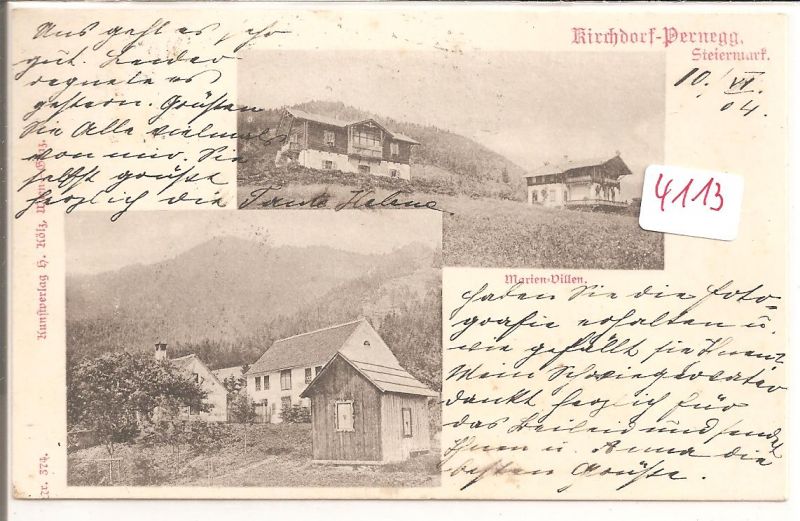 Kirchdorf-Pernegg.
Steiermark.
10. VI.
04
Uns geht es sehr
gut. Leider
regnete es
gestern. Grüßen
Sie Alle vielmals
von mir. Sie
selbst grüßt
herzlich die Tante Helene
4113
Marien-Villen.
Haben Sie die Foto-
grafie erhalten u.
wie gefällt sie Ihnen?
Mein Schwiegervater
dankt herzlich für
das Beileid und sendet
Ihnen u. Anna die
besten Grüße.
Kunstverlag H. Kölz, Graz.
Nr. 374.